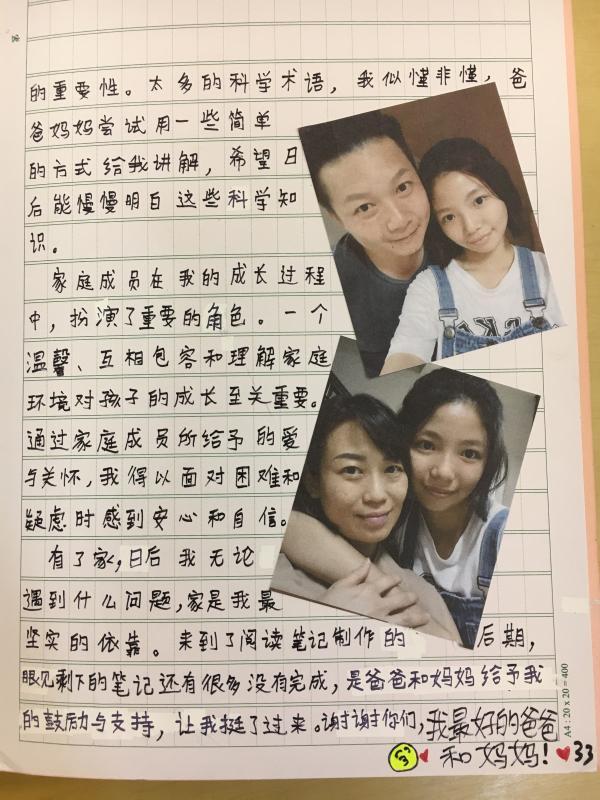 的重要性。太多的科学术语，我似懂非懂，爸
爸妈妈尝试用一些简单
的方式给我讲解，希望日
后能慢慢明白这些科学知
识。
家庭成员在我的成长过程
中，扮演了重要的角色。一个
温馨、互相包容和理解家庭
环境对孩子的成长至关重要。
通过家庭成员所给予的爱
与关怀，我得以面对困难和
疑虑时感到安心和自信。
有了家，日后我无论
遇到什么问题，家是我最
坚实的依靠。来到了阅读笔记制作的后期，
眼见剩下的笔记还有很多没有完成，是爸爸和妈妈给予我
的鼓励与支持，让我挺了过来。谢谢你们，我最好的爸爸
和妈妈！
33
A4 : 20 x 20 = 400